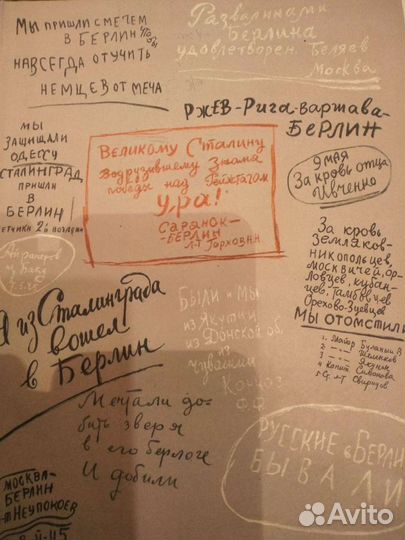 Мы пришли с мечем
в Берлин
навсегда отучить
немцев от меча
Развалинами
Берлина
удовлетворен. Беляев
Москва
Ржев-Рига-Варшава-
Берлин
Мы
защищали
Одессу
Сталинград,
пришли
в
Берлин
Великому Сталину
водрузившему знамя
победы над Рейхстагом
ура!
Саранск-
-Берлин
Л-т Горховин
9 мая
За кровь отца
Ивченко
За кровь
земляков-
никопольцев,
москвичей, ор-
ловцев, кубан-
цев, тамбовцев
Орехово-Зуевцев
мы отомстили
Я из Сталинграда
вошел
в Берлин
Были и мы
из Якутии
из Донской об.
из
Чувашии
Мечтали до-
бить зверя
в его берлоге
и добили
Русские в Берли
бывали
Москва-
Берлин
Неупокоев
45
Avito